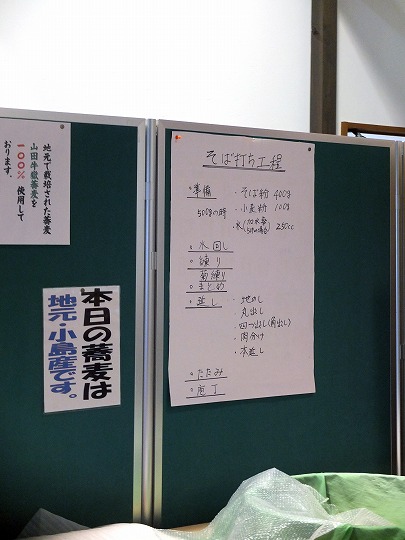 地元で栽培された蕎麦
山田牛嶽蕎麦を
一〇〇% 使用して
おります。
本日の蕎麦は
地元・小島産です。
そば打ち工程
○準備
500gの時
・そば粉 400g
・小麦粉 100g
・水 250cc
○水回し
○練り
菊練り
○まとめ
○延し
・地のし
・丸出し
・四つ出し(角出し)
・肉分け
・本延し
○たたみ
○庖丁